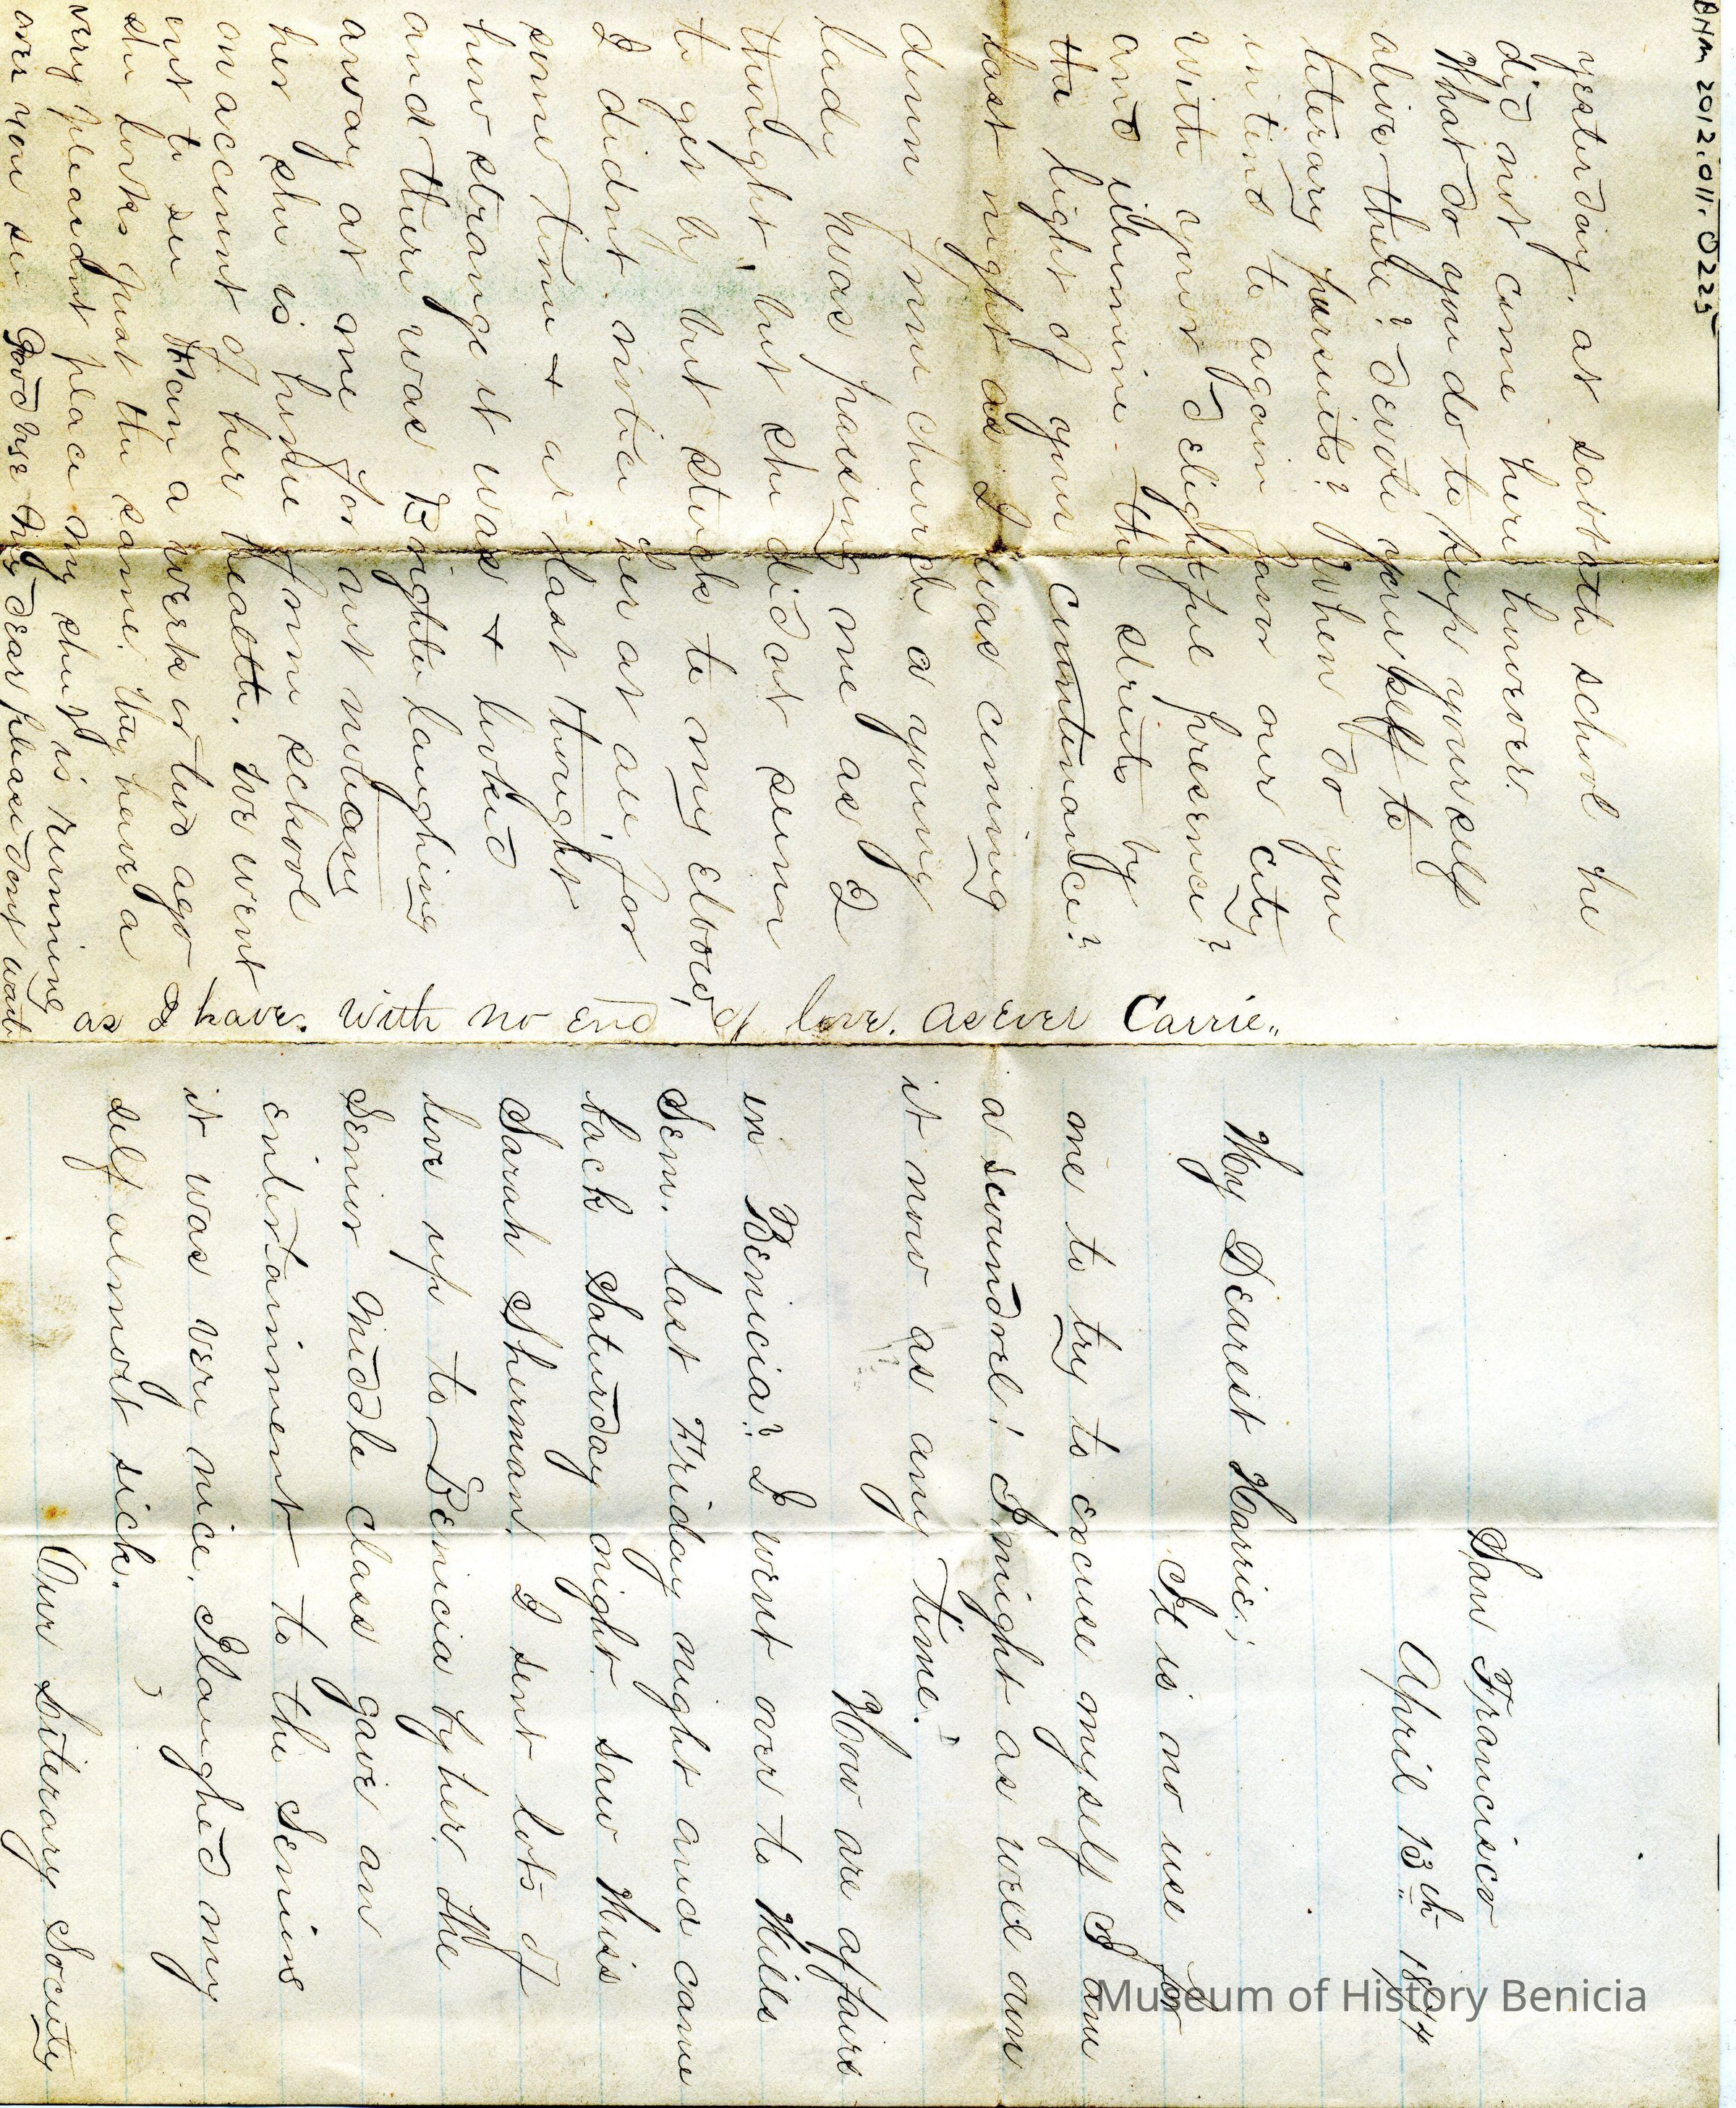 San Francisco
April 13th 1874
My Dearest Harrie;
It is no use for
me to try to excuse myself I am
a scoundrel! I might as well own
it now as any time.
How are affairs
in Benicia? I went over to Mills
Sem. last Friday night and came
back Saturday night. saw Miss
Sarah Sherman. I sent lots of
love up to Benicia by her. the
Senior Middle class gave an
entertainment to the Seniors
it was very nice. I laughed my
self almost sick.
Our Literary Society
yesterday. at sabbath school he
did not come here however.
What do you do to keep yourself
alive there? devote yourself to
literary pursuits? When do you
intend to again favor our city
with your delightful presence?
and illumine the streets by
the light of your countenance?
Last night as I was coming
down from church a young
lady was passing me as I
thought, but she didnt seem
to get by but stuck to my elbow,
I didnt notice her at all for
some time & at last thought
how strange it was & looked
and there was Brightie laughing
away at me for not noticing
her she is home from school
on account of her health. we went
out to see Ham a week or two ago
she looks just the same. they have a
very pleasant place my sheet is running
over you see Good bye My dear please dont wait
as I have. with no end of love. as ever Carrie.,
BHM 2012.011.0225
Museum of History Benicia